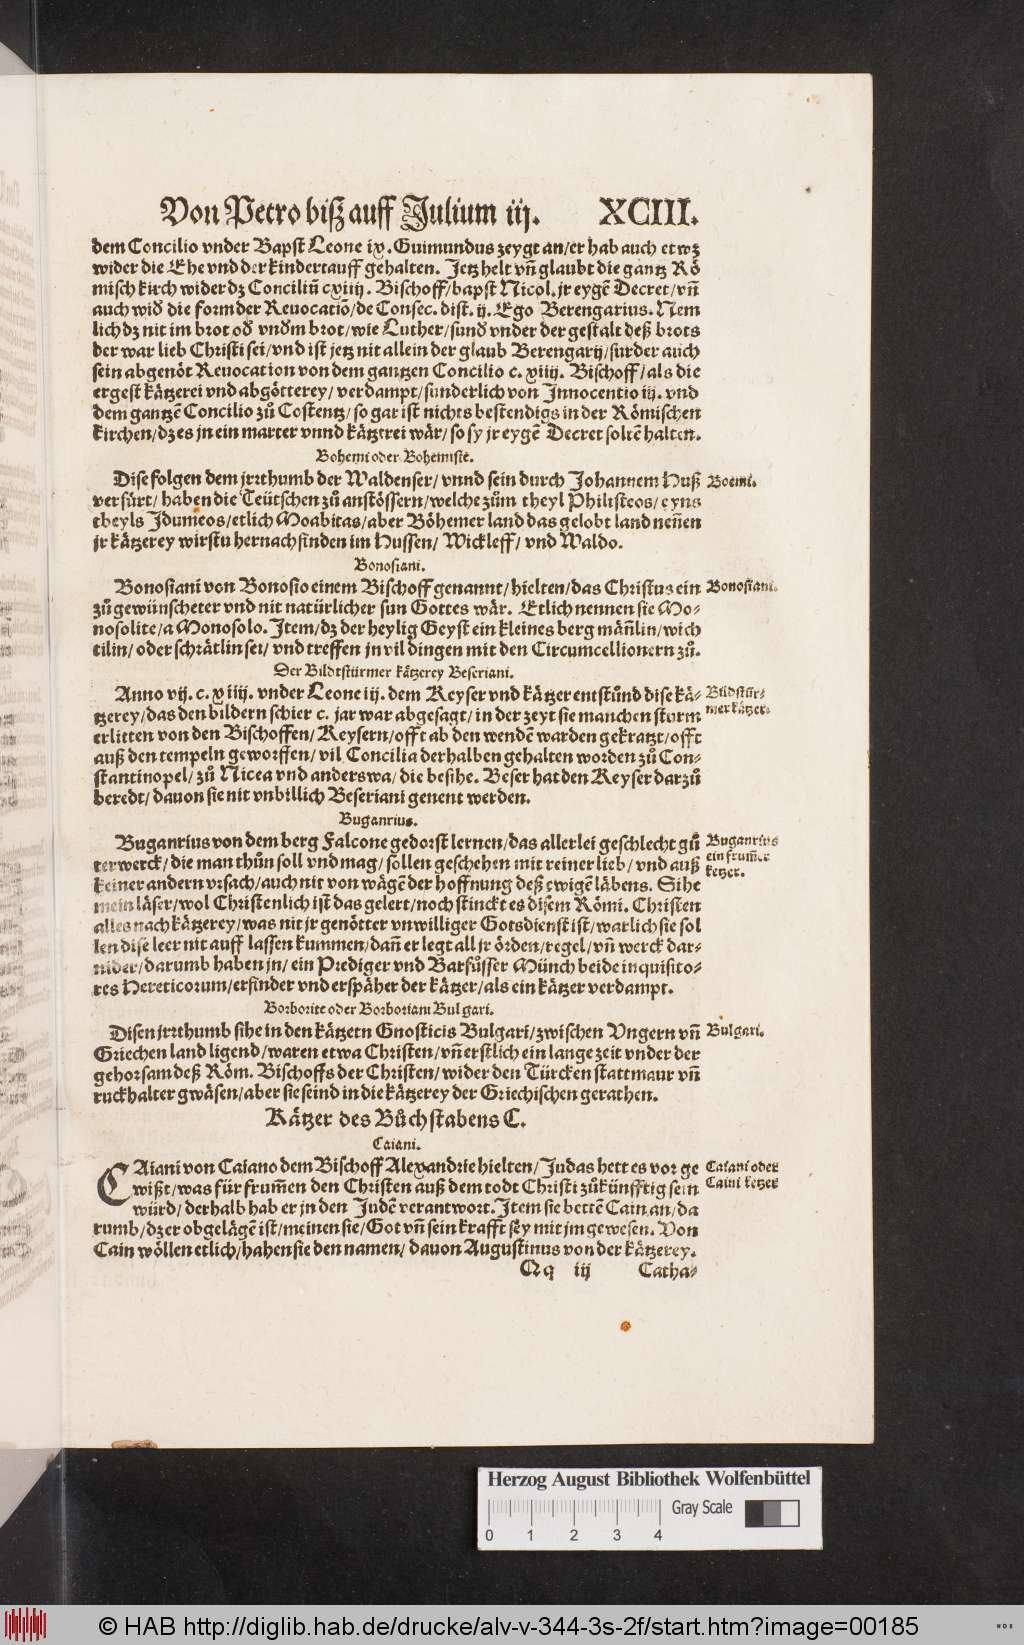 Von Petro biß auff Julium iij. XCIII.
dem Concilio vnder Bapst Leone ix. Guimundus zeygt an/er hab auch etwz
wider die Ehe vnd der kindertauff gehalten. Jetz helt vñ glaubt die gantz Rö
misch kirch wider dz Conciliũ cxiiij. Bischoff/bapst Nicol. jr eygẽ Decret/vñ
auch wid̄ die form der Reuocatiõ/de Consec. dist. ij. Ego Berengarius. Nem
lich dz nit im brot od̄ vnd̄m brot/wie Luther/sund̄ vnder der gestalt deß brots
der war lieb Christi sei/vnd ist jetz nit allein der glaub Berengarij/surder auch
sein abgenöt Reuocation von dem gantzen Concilio c. xiiij. Bischoff/als die
ergest kätzerei vnd abgötterey/verdampt/sunderlich von Innocentio iij. vnd
dem gantzẽ Concilio zů Costentz/so gar ist nichts bestendigs in der Römischen
kirchen/dz es jn ein marter vnnd kätzerei wär/so sy jr eygẽ Decret soltẽ halten.
Bohemi oder Bohemiste.
Dise folgen dem jrrthumb der Waldenser/vnnd sein durch Johannem Huß
verfürt/haben die Teütschen zů anstössern/welche zům theyl Philisteos/eyns
theyls Idumeos/etlich Moabitas/aber Böhemer land das gelobt land neñen
jr kätzerey wirstu hernach finden im Hussen/Wickleff/vnd Waldo.
Boemi.
Bonosiani.
Bonosiani von Bonosio einem Bischoff genannt/hielten/das Christus ein
zů gewünscheter vnd nit natürlicher sun Gottes wär. Etlich nennen sie Mo-
nosolite/a Monosolo. Item/dz der heylig Geyst ein kleines berg mäñlin/wich
tilin/oder schrätlin sei/vnd treffen jn vil dingen mit den Circumcellionern zů.
Bonosiani.
Der Bildtstürmer kätzerey Beseriani.
Anno vij. c. xiiij. vnder Leone iij. dem Keyser vnd kätzer entstůnd dise kä-
tzerey/das den bildern schier c. jar war abgesagt/in der zeyt sie manchen sturm
erlitten von den Bischoffen/Keysern/offt ab den wendẽ warden gekratzt/offt
auß den tempeln geworffen/vil Concilia derhalben gehalten worden zů Con-
stantinopel/zů Nicea vnd anderswa/die besihe. Beser hat den Keyser darzů
beredt/dauon sie nit vnbillich Beseriani genent werden.
Bildstür-
mer kätzer.
Buganrius.
Buganrius von dem berg Falcone gedorst lernen/das allerlei geschlecht gů
ter werck/die man thůn soll vnd mag/sollen geschehen mit reiner lieb/vnd auß
keiner andern vrsach/auch nit von wägẽ der hoffnung deß ewigẽ läbens. Sihe
mein läser/wol Christenlich ist das gelert/noch stinckt es disem Römi. Christen
alles nach kätzerey/was nit jr genötter vnwilliger Gotsdienst ist/warlich sie sol
len dise leer nit auff lassen kummen/dañ er legt all jr örden/regel/vñ werck dar-
nider/darumb haben jn/ein Prediger vnd Barfůsser Münch beide inquisito-
res Hereticorum/erfinder vnd erspäher der kätzer/als ein kätzer verdampt.
Buganrius
ein frum̃er
ketzer.
Borborite oder Borboriani Bulgari.
Disen jrrthumb sihe in den kätzern Gnosticis Bulgari/zwischen Vngern vñ
Griechen land ligend/waren etwa Christen/vñ erstlich ein lange zeit vnder der
gehorsam deß Röm. Bischoffs der Christen/wider den Türcken stattmaur vñ
ruckhalter gwäsen/aber sie seind in die kätzerey der Griechischen gerathen.
Bulgari.
Kätzer des Bůchstabens C.
Caiani.
CAiani von Caiano dem Bischoff Alexandrie hielten/Judas hett es vor ge
wißt/was für frum̃en den Christen auß dem todt Christi zůkünfftig sein
würd/derhalb hab er jn den Judẽ verantwort. Item sie bettẽ Cain an/da
rumb/dz er obgelägẽ ist/meinen sie/Got vñ sein krafft sey mit jm gewesen. Von
Cain wöllen etlich/haben sie den namen/dauon Augustinus von der kätzerey.
Caiani oder
Caini ketzer
Qq iij Catha-
Herzog August Bibliothek Wolfenbüttel
Gray Scale
0 1 2 3 4
© HAB http://diglib.hab.de/drucke/alv-v-344-3s-2f/start.htm?image=00185